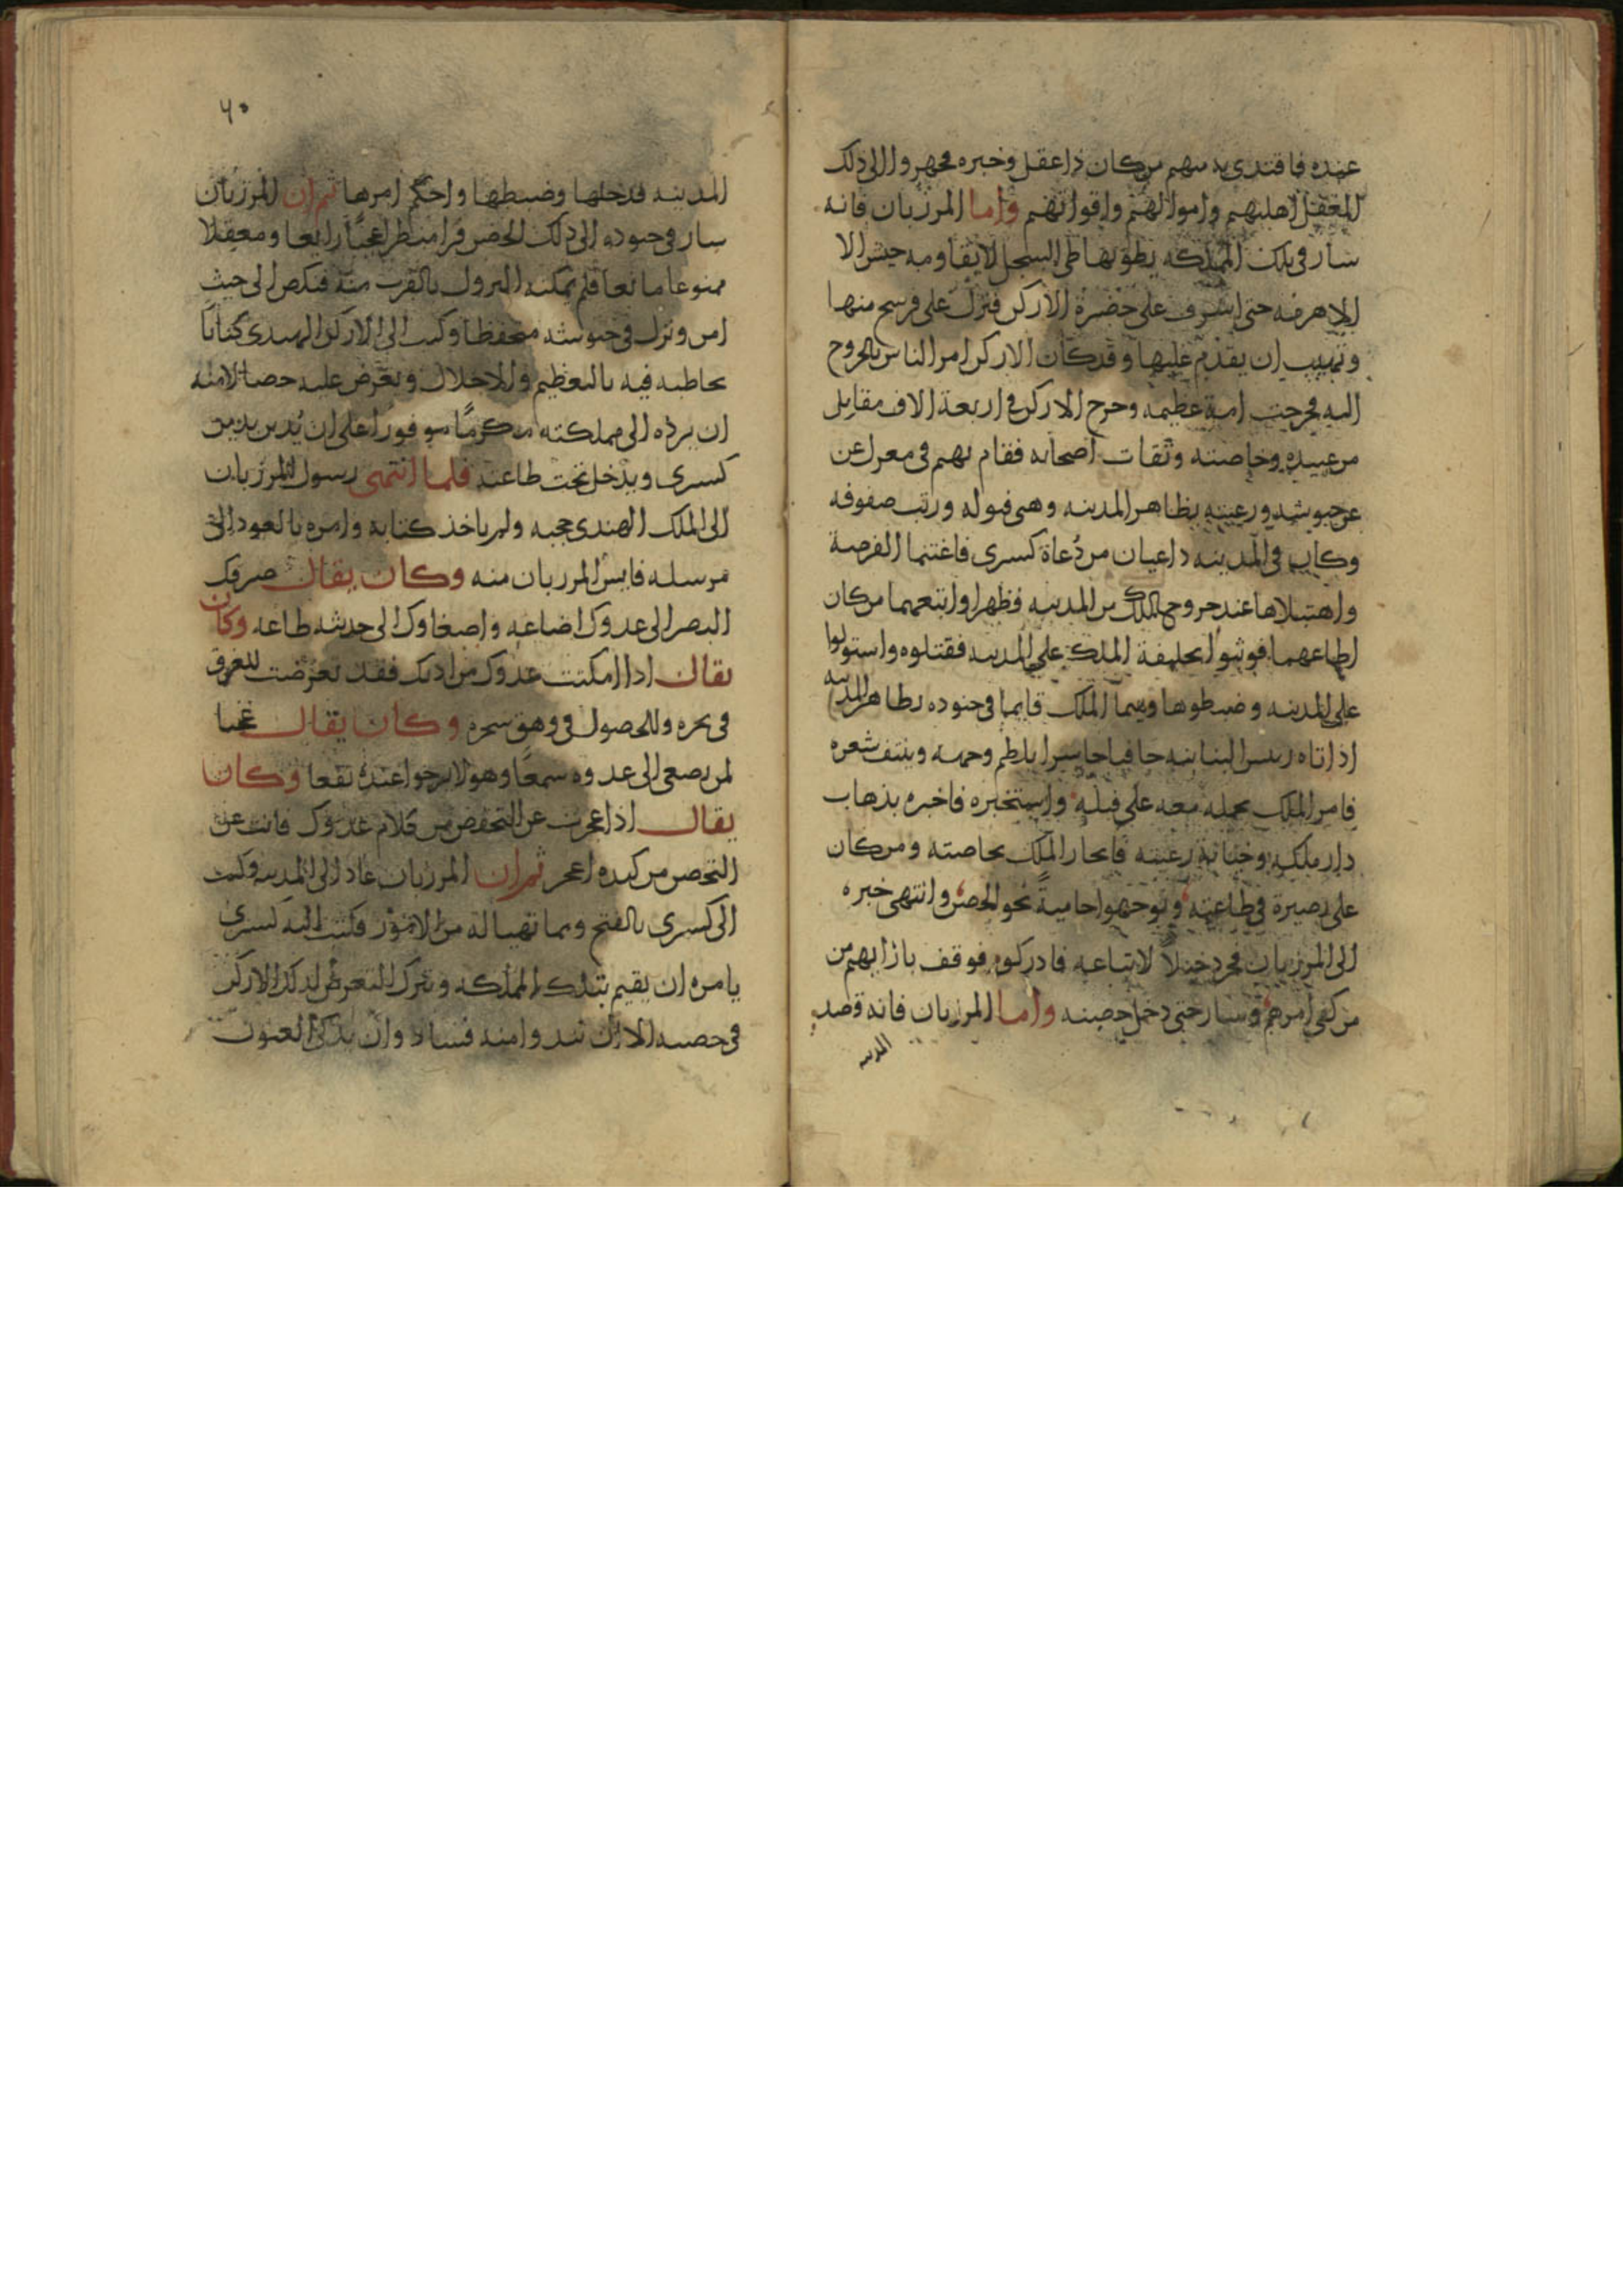 عنده فاقتدى به منهم من كان ذا عقل وخبره فجهروا الى ذلك
المعقل اهليهم واموالهم واقواتهم واما المرزبان فانه
سار فى تلك المملكه يطويها طى السجل لا يقاومه جيش الا
الا هزمه حتى اشرف على حضرة الاركن فنزل على فرسخ منها
وتهيب ان يقدم عليها وقد كان الاركن امر الناس بالخروج
اليه فخرجت امة عظيمه وخرج الاركن فى اربعة الاف مقاتل
من عبيده وخاصته وثقات اصحابه فقام بهم فى معزل عن
عن جيوشه ورعيته بظاهر المدينه وهى فوله ورتب صفوفه
وكان فى المدينه داعيان من دعاة كسرى فاغتنما الفرصة
واهتبلاها عند خروج الملك من المدينه فظهرا واتبعهما من كان
اطاعهما فوثبوا بخليفة الملك على المدينه فقتلوه واستولوا
على المدينه وضبطوها وبينما الملك قايما فى جنوده بظاهر المدينه
اذ اتاه رييس البنانيه حافيا حاسرا يلطم وجهه وينتف شعره
فامر الملك بحمله معه على فيله واستخبره فاخبره بذهاب
دار ملكه وخيانة رعيته فانحاز الملك بخاصته ومن كان
على بصيرة فى طاعته وتوجهوا حامية نحو الحصن وانتهى خبره
الى المرزبان فجرد خيلا لاتباعه فادركوه فوقف بازايهم من
من كفى امرهم وسار حتى دخل حصنه واما المرزبان فانه قصد
المدينه
٦٠
المدينه فدخلها وضبطها واحكم امرها ثم ان المرزبان
سار فى جنوده الى ذلك الحصن فراى منظرا عجبا رايعا ومعقلا
ممنوعا مانعا فلم يمكنه النزول بالقرب منه فنكص الى حيث
امن ونزل فى جيوشه متحفظا وكتب الى الاركن الهندى كتابا
يخاطبه فيه بالتعظيم والاجلال ويعرض عليه خصالا منه
ان يرده الى مملكته مكرما موفورا على ان يدين بدين
كسرى ويدخل تحت طاعته فلما انتهى رسول المرزبان
الى الملك الهندى حجبه ولم ياخذ كتابه وامره بالعود الى
مرسله فايس المرزبان منه وكان يقال صرفك
البصر الى عدوك اضاعه واصغاوك الى حديثه طاعه وكان
يقال اذا امكنت عدوك من اذنك فقد تعرضت للغرق
فى بحره وللحصول فى وهق سحره وكان يقال عجبا
لمن يصغى الى عدوه سمعا وهو لا يرجوا عنده نفعا وكان
يقال اذا عجزت عن التحفظ من كلام عدوك فانت عن
التحصن من كيده اعجز ثم ان المرزبان عاد الى المدينه وكتب
الى كسرى بالفتح وبما تهيا له من الامور فكتب اليه كسرى
يامره ان يقيم بتلك المملكه ويترك التعرض لذلك الاركن
فى حصنه الا ان تبدوا منه فساد وان يذكى العيون